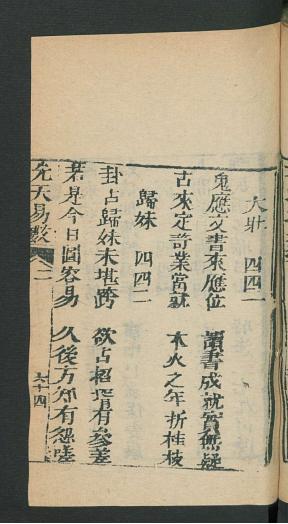 大壯 四四一
鬼應文書來應位 讀書成就實無疑
古來定許業當就 木火之年折桂枝
歸妹 四四二
卦占歸妹未堪誇 欲占招有參差
若是今日圖容易 久後方知有怨嗟
先天易數 二
六十四